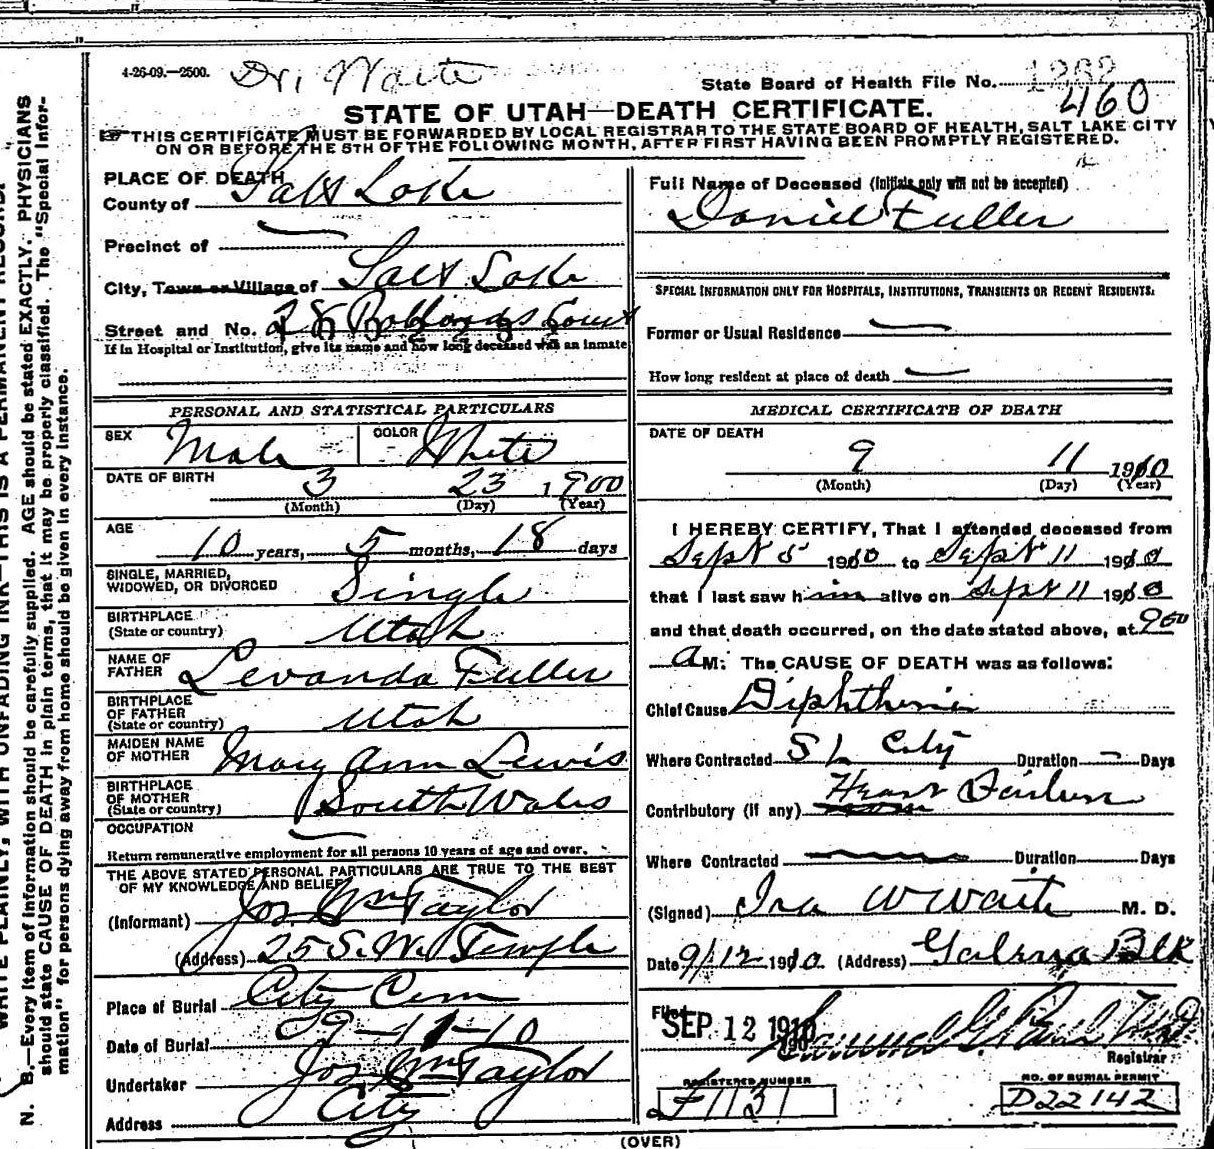 4-26-09.—2500. Dr. Waite
State Board of Health File No. 1262
460
STATE OF UTAH—DEATH CERTIFICATE.
THIS CERTIFICATE MUST BE FORWARDED BY LOCAL REGISTRAR TO THE STATE BOARD OF HEALTH, SALT LAKE CITY
ON OR BEFORE THE 5TH OF THE FOLLOWING MONTH, AFTER FIRST HAVING BEEN PROMPTLY REGISTERED.
PLACE OF DEATH
County of Salt Lake
Precinct of —
City, Town or Village of Salt Lake
Street and No. 28 Court
If in Hospital or Institution, give its name and how long deceased was an inmate
PERSONAL AND STATISTICAL PARTICULARS
SEX Male COLOR White
DATE OF BIRTH 3 23 1900
(Month) (Day) (Year)
AGE 10 years, 5 months, 18 days
SINGLE, MARRIED,
WIDOWED, OR DIVORCED Single
BIRTHPLACE
(State or country) Utah
NAME OF
FATHER Levanda Fuller
BIRTHPLACE
OF FATHER
(State or country) Utah
MAIDEN NAME
OF MOTHER Mary Ann Lewis
BIRTHPLACE
OF MOTHER
(State or country) South Wales
OCCUPATION —
Return remunerative employment for all persons 10 years of age and over.
THE ABOVE STATED PERSONAL PARTICULARS ARE TRUE TO THE BEST
OF MY KNOWLEDGE AND BELIEF
(Informant) Jos Wm Taylor
(Address) 25 S. W. Temple
Place of Burial City Cem
Date of Burial 9-11-10
Undertaker Jos Wm Taylor
Address City
Full Name of Deceased (Initials only will not be accepted)
Daniel Fuller
SPECIAL INFORMATION ONLY FOR HOSPITALS, INSTITUTIONS, TRANSIENTS OR RECENT RESIDENTS.
Former or Usual Residence —
How long resident at place of death —
MEDICAL CERTIFICATE OF DEATH
DATE OF DEATH
9 11 1910
(Month) (Day) (Year)
I HEREBY CERTIFY, That I attended deceased from
Sept 5 1910 to Sept 11 1910
that I last saw him alive on Sept 11 1910
and that death occurred, on the date stated above, at 9 00
A M. The CAUSE OF DEATH was as follows:
Chief Cause Diphtheria
Where Contracted S L City Duration — Days
Contributory (if any) Heart Failure
Where Contracted — Duration Days
(Signed) Ira W Waite M. D.
Date 9/12 1910 (Address) Galena Blk
Filed
SEP 12 1910
Registrar
REGISTERED NUMBER
F1131
NO. OF BURIAL PERMIT
D22142
(OVER)
N. B.—Every item of information should be carefully supplied. AGE should be stated EXACTLY. PHYSICIANS
should state CAUSE OF DEATH in plain terms, that it may be properly classified. The "Special Infor-
mation" for persons dying away from home should be given in every instance.
WRITE PLAINLY, WITH UNFADING INK—THIS IS A PERMANENT RECORD.